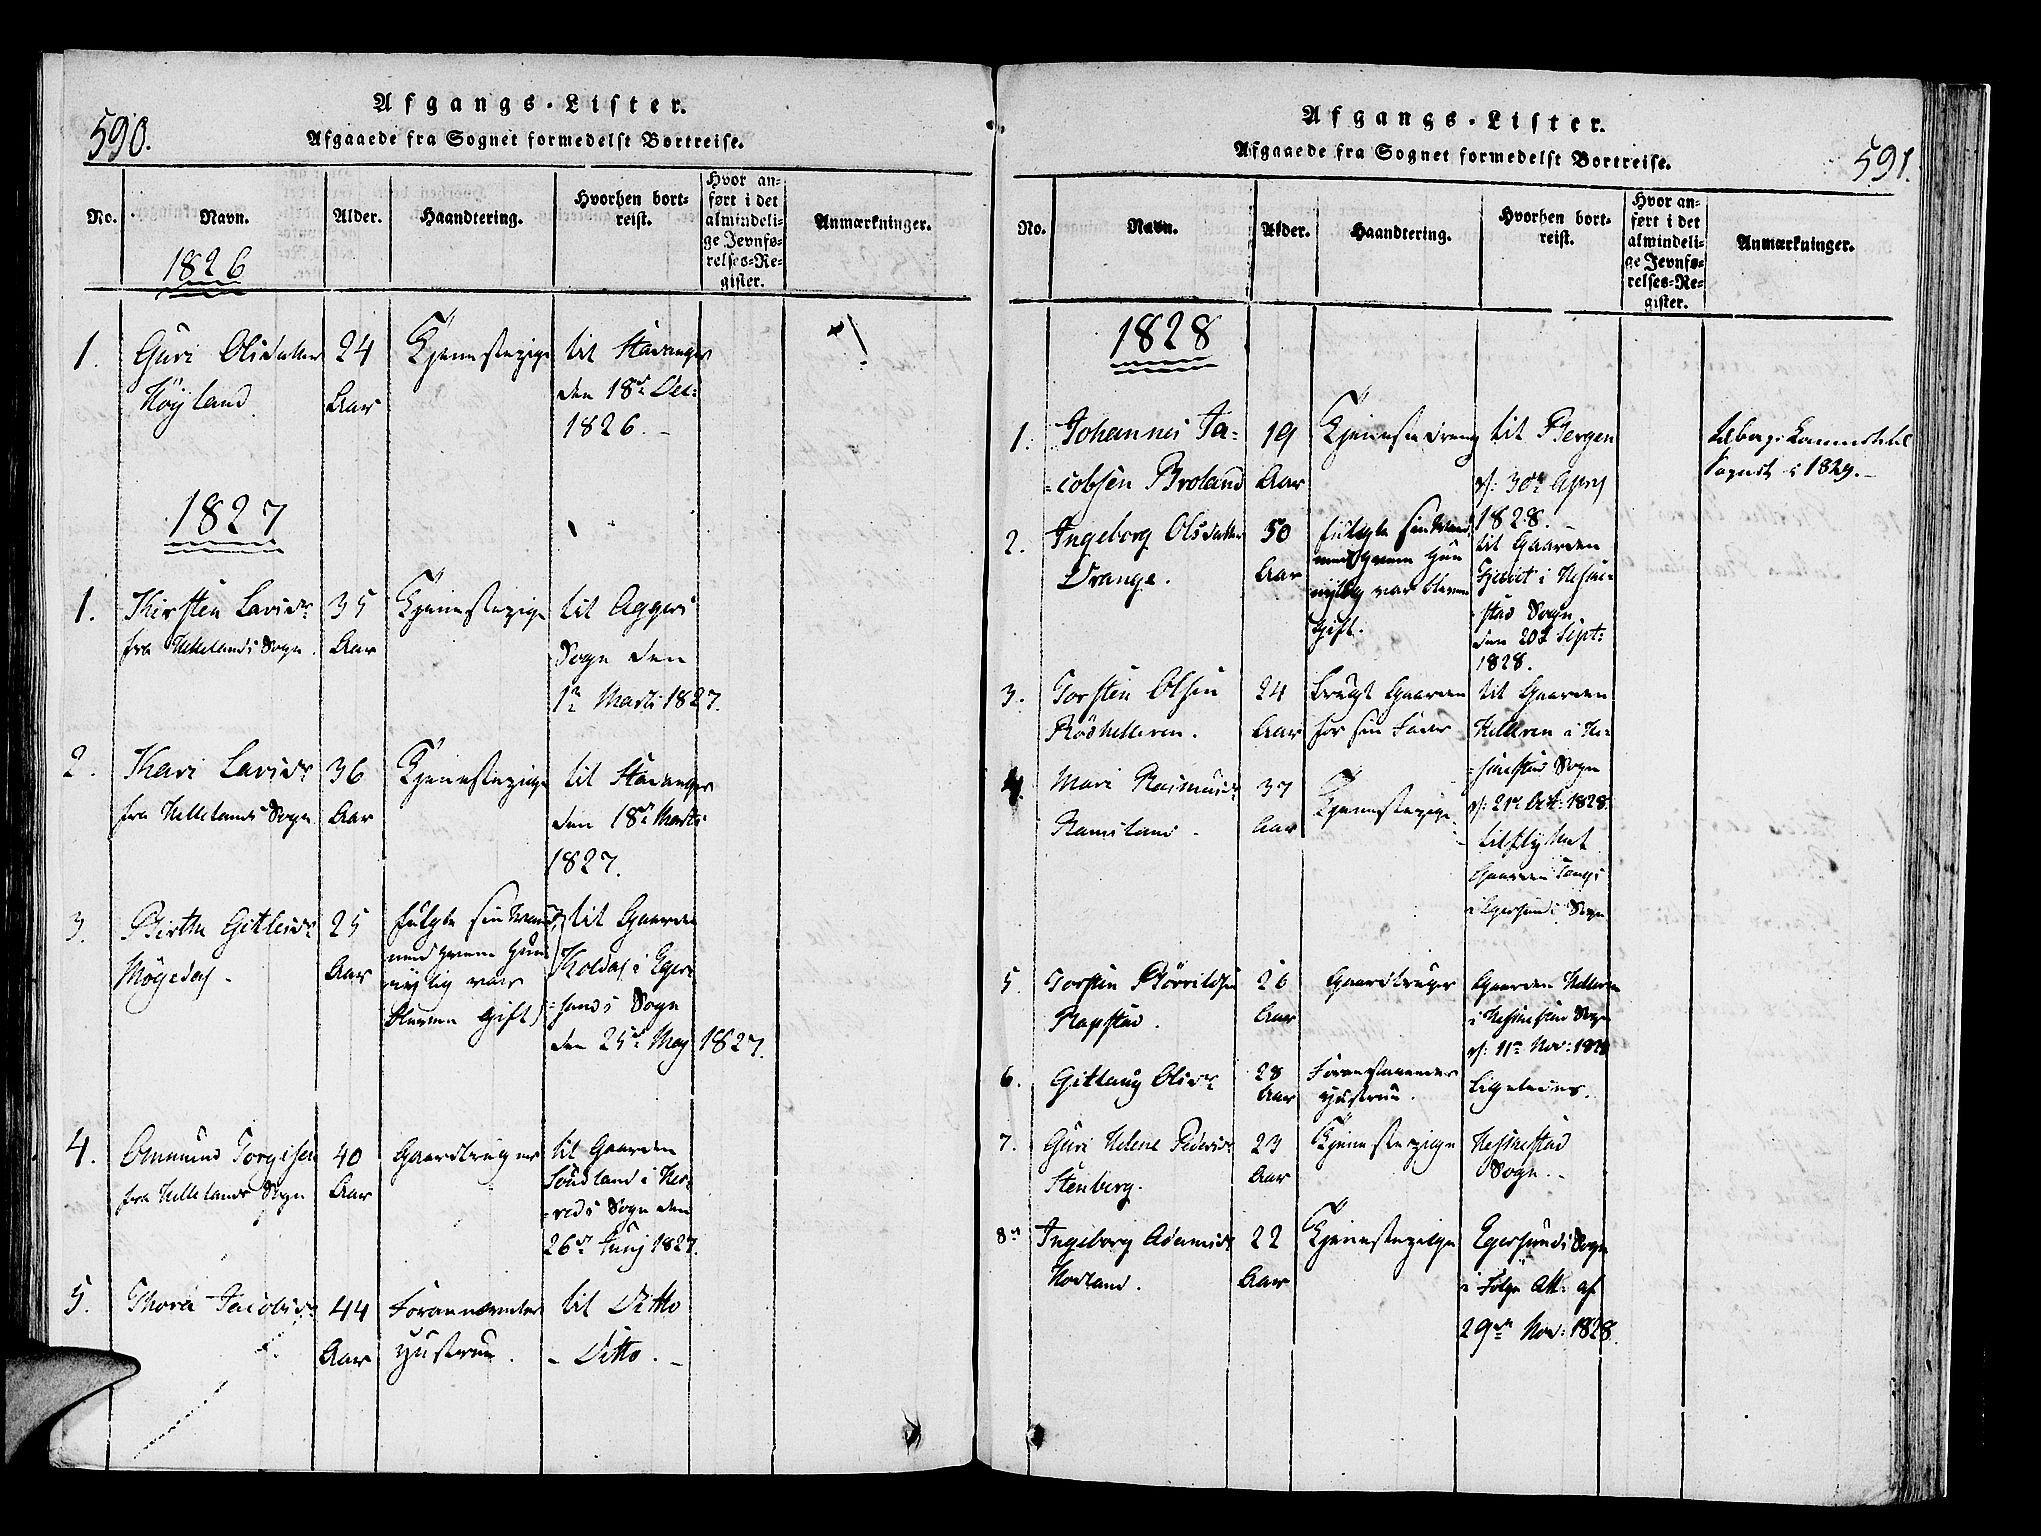 590.
Afgangs-Lister.
Afgaaede fra Sognet formedelst Bortreise.
No.
Navn.
Alder.
Haandtering.
Hvorhen bort-
reist.
Hvor an-
ført i det
almindeli-
ge Jevnfø-
relses-Re-
gister.
Anmærkninger.
1826
1.
Guri Olsdatter
Høyland
24
Aar
Tjenestepige
til Stavanger
den 18de Dec:
1826.
1827
1.
Kirsten Larsdr
fra Hellelands Sogn
35
Aar
Tjenestepige
til Aggers
Sogn den
1ste Marts 1827.
2.
Kari Larsdr
fra Hellelands Sogn
36
Aar
Tjenestepige
til Stavanger
den 18de Marts
1827.
3.
Birthe Gitlesdr
Møgedal
25
Aar
fulgte sin Mand
med hvem hun
nylig var
bleven gift)
til Gaarden
Koldal i Eger-
sunds Sogn
den 25de Maj 1827.
4.
Omund Torgisen
fra Hellelands Sogn
40
Aar
Gaardbruger
til Gaarden
i Her-
reds Sogn den
26de Junj 1827.
5.
Thora Jacobsdr
44
Aar
Forannævntes
Hustrue.
til Ditto
- Ditto. -
591.
Afgangs-Lister.
Afgaaede fra Sognet formedelst Bortreise.
No.
Navn.
Alder.
Haandtering.
Hvorhen bort-
reist.
Hvor an-
ført i det
almindeli-
ge Jevnfø-
relses-Re-
gister.
Anmærkninger.
1828
1.
Johannes Ja-
cobsen Broland
19
Aar
Tjenestedreng
til Bergen
d: 30te April
1828.
tilbage kommet til
Sognet i 1829.
2.
Ingeborg Olsdatter
Drange.
50
Aar
fulgte sin Mand
med hvem hun
nylig var bleven
gift.
til Gaarden
i Hesne-
stad Sogn
den 20de Sept:
1828.
3.
Torsten Olsen
Rødhelleren.
24
Aar
brugt Gaarden
for sin Fader
til Gaarden
Helleren i He-
snestad Sogn
d: 21de Oct: 1828.
4.
Mari Rasmusdr
Ramsland
37
Aar
Tjenestepige
tilflyttet
Gaarden
i Egersunds Sogn
5.
Torsten Børrildsen
Rapstad.
26
Aar
Gaardbruger
Gaarden Helleren
i Hesnestad Sogn
d: 11te Nov: 1828
6.
Gitlaug Olsdr
28
Aar
Foranstaaendes
Hustrue.
Ligeledes.
7.
Guri Helene Pedersdr
Stenberg.
23
Aar
Tjenestepige
Hesnestad
Sogn.
8de
Ingeborg Adamsdr
Hovland.
22
Aar
Tjenestepige
Egersunds Sogn
i Følge Att: af
29de Nov: 1828.